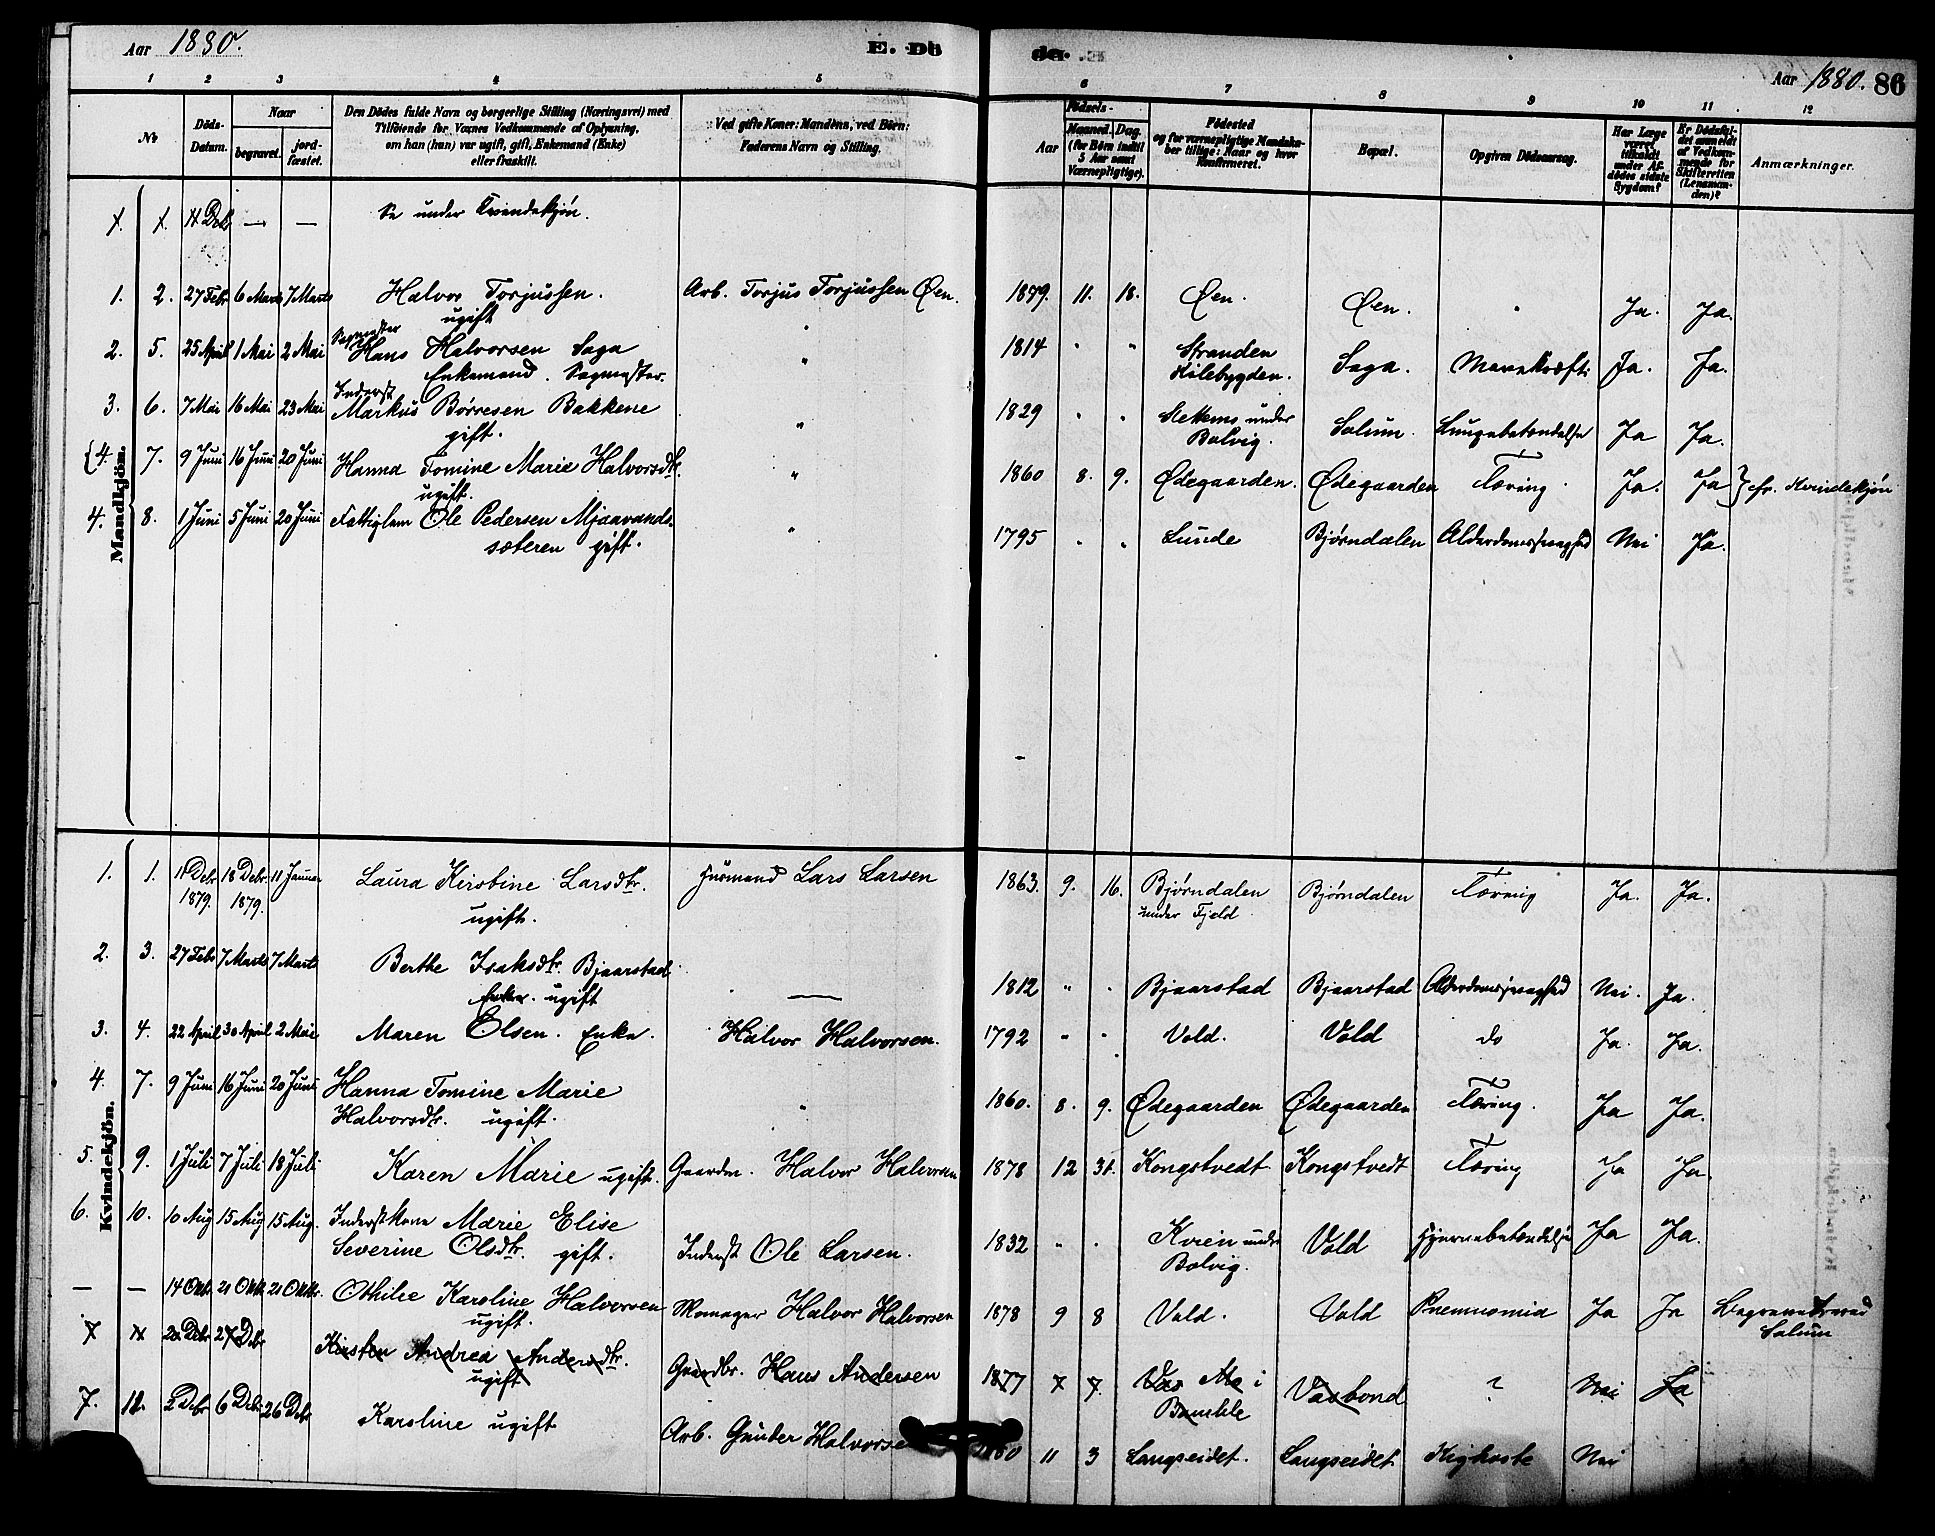 Aar 1880.
E. Dö
de. E.
Aar 1880. 86
1 2 3 4 5 6 7 8 9 10 11 12
No
Döds-
Datum.
Naar
begravet.
jord-
fæstet.
Den Dödes fulde Navn og borgerlige Stilling (Næringsvei) med
Tilföiende for Voxnes Vedkommende af Oplysning,
om han (hun) var ugift, gift, Enkemand (Enke)
eller fraskilt.
Ved gifte Koner: Mandens, ved Börn:
Faderens Navn og Stilling.
Födsels-
Aar
Maaned. Dag.
(for Börn indtil
5 Aar samt
Værnepligtige).
Födested
og for værnepligtige Mandska-
ber tillige: Naar og hvor
Konfirmeret.
Bopæl.
Opgiven Dödsaarsag.
Har Læge
været
tilkaldt
under Af-
dödes sidste
Sygdom?
Er Dödsfal-
det anmeldt
af Vedkom-
mende for
Skifteretten
(Lensman-
den)?
Anmærkninger.
Mandkjön.
1. 11 Debr — — Se under Kvindekjön.
1. 2. 27 Febr 6 Marts 7 Marts Halvor Torjussen. Arb. Torjus Torjussen Øen. 1879. 11. 18. Øen. Øen. " Ja. Ja.
ugift
2. 5. 25 April 1 Mai 2 Mai Sagmester Hans Halvorsen Saga " 1814 " " Stranden Saga. Marekræft. Ja. Ja.
Enkemand. Sagmester. Kilebygden.
3. 6. 7 Mai 16 Mai 23 Mai Inderst Markus Börresen Bakkene " 1829 " " Slettems under Solum. Lungebetændelse Ja Ja.
gift. Bolvig.
{4. 7. 9 Juni 16 Juni 20 Juni Hanna Tomine Marie Halvorsdtr. " 1860 8. 9. Ødegaarden. Ødegaarden Tæring. Ja. Ja } cfr. Kvindekjön
ugift.
4. 8. 1 Juni 5 Juni 20 Juni Fattiglem Ole Pedersen Mjaavands- " 1795 " " Lunde Bjørndalen Alderdomssvaghed Nei Ja.
sæteren gift.
Kvindekjön.
1. 1. 11 Debr 18 Debr 11 Januar Laura Kirstine Larsdtr. Husmand Lars Larsen 1863. 9. 16. Bjørndalen Bjørndalen Tæring Ja. Ja.
1879. 1879. ugift. under Fjeld
2. 3. 27 Febr 7 Marts 7 Marts Berthe Isaksdtr. Bjaarstad — 1812 " " Bjaarstad Bjaarstad Alderdomssvaghed Nei. Ja.
Enke. ugift
3. 4. 22 April 30 April 2 Mai Maren Olsen. Enke. Halvor Halvorsen. 1792 " " Vold. Vold do Ja. Ja.
4. 7. 9 Juni 16 Juni 20 Juni Hanna Tomine Marie " 1860. 8. 9. Ødegaarden Ødegaarden Tæring. Ja Ja.
Halvorsdtr. ugift.
5. 9. 1 Juli 7 Juli 18 Juli Karen Marie ugift. Gaardm. Halvor Halvorsen 1878 12 31. Kongstvedt Kongstvedt Tæring Ja Ja.
6. 10. 10 Aug 15 Aug 15 Aug. Inderstkone Marie Elise Inderst Ole Larsen. 1832 " " Kvien under Vold Hjernebetændelse Ja Ja.
Severine Olsdtr. gift. Bolvig.
— — 14 Okt. 21 Okt. 21 Oktr. Othilie Karoline Halvorsen Halvor Halvorsen 1878 9 8 Vold. Vold Pneumonia Ja Ja Begravet ved
ugift. Solum
7 11 20 Debr 27 Debr Kirsten Andrea Andersdtr. Gaardbr. Hans Andersen 1877 7 7. Vas Me i Vasbond ? Nei Ja
ugift Bamble
7. 12. 2 Debr 6 Debr 26 Debr Karoline ugift Arb. Gunder Halvorse 11 3 Langseidet. Langseidet Kighoste Nei